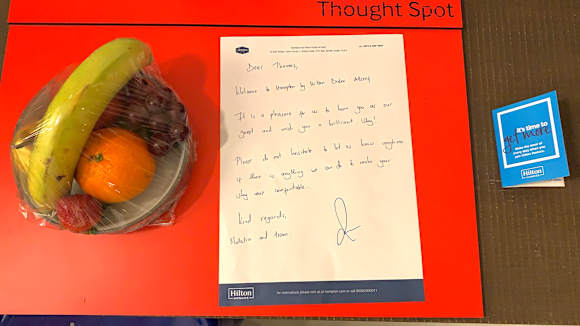 Thought Spot
Dear Thomas,
Welcome to Hampton by Hilton
It is a pleasure for us to have you as our
guest and wish you a brilliant stay!
Please do not hesitate to let us know anytime
if there is anything we can do to make your
stay more comfortable.
Kind regards,
and team
Hilton
It's time to
get more
Hilton